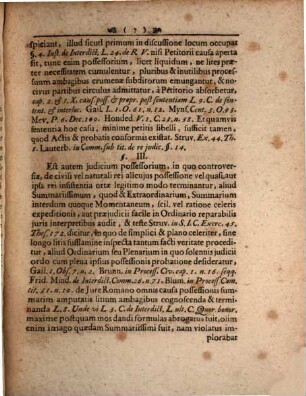 ( 7 )
spiciant, illud sicut primum in discussione locum occupat
§. 4. Inst. de Interdict. L. 24. de R. V. nisi Petitorii causa aperta
sit, tunc enim possessorium, licet liquidum, ne lites præter
necessitatem cumulentur, pluribus & inutilibus processuum
ambagibus erumenæ subditorum emungantur, & nocivus
partibus circulus admittatur, à Petitorio absorbetur,
cap. 2. & 1. X. caus. poss. & propr. post sententiam L. 9. C. de sentent.
& interloc. Gail. L. 1. O. 61. n. 12. Myns. Cent. 5. O. 95.
Mev. P. 6. Dec. 100. Honded. V. 1. C. 25. n. 58. Et quamvis
sententia hoc casu, minime petitis libelli, sufficit tamen,
quod Actis & probatis conformis existat. Struv. Ex. 44. Th.
1. Lauterb. in Comm. sub tit. de re judic. §. 14.
§. III.
Est autem judicium possessorium, in quo controversiæ,
de civili vel naturali rei alicujus possessione vel quasi aut
ipsa rei insistentia ortæ legitimo modo terminantur, aliud
Summarium, quod & Extraordinarium, Summarium
interdim quoque Momentaneum, scil. vel ratione celeris
expeditionis, aut præjudicii facile in Ordinario reparabilis
juris interpretibus audit, & teste Struv. in S. J. C. Exerc. 49.
Thes. 172. dicitur, quo de simplici & plano celeriter, sine
longo litis fuuflamine inspecta tantum facti veritate proceditur,
aliud Ordinarium seu Plenarium in quo solemni judicii
ordo cum plena ipsius possessionis probatione desideratur,
Gail. 1. Obs. 7. n. 2. Brunn. in Process. Civ. cap. 1. n. 16. seqq.
Frid. Mind. de Interdict. Comm. 26. n. 71. Blum. in Process. Cum.
tit. 21. n. 10. de Jure Romano omnis causa possessionis summarim
amputatis litium ambagibus cognoscenda & terminanda
L. 8. Unde vi L. 3. C. de Interdict. L. ult. C. Quor. bonor.
maxime postquam mos dandi formulas abrogatus fuit, olim
enim imago quædam Summariissimi fuit, nam violatus im-
plorabat